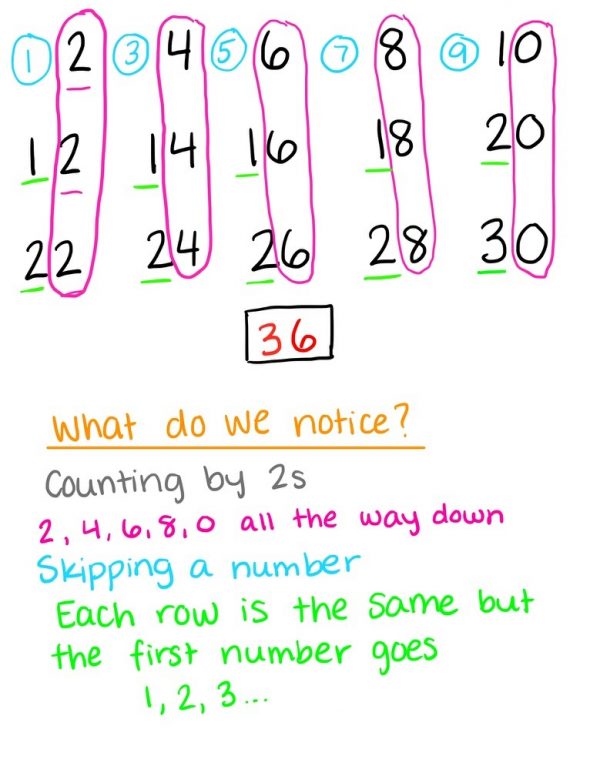 1 2 3 4 5 6 7 8 9 10
12 14 16 18 20
22 24 26 28 30
36
What do we notice?
Counting by 2s
2, 4, 6, 8, 0 all the way down
Skipping a number
Each row is the same but
the first number goes
1, 2, 3...